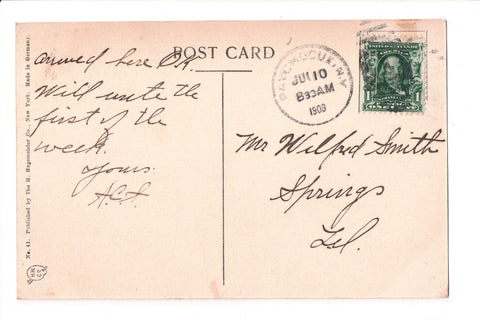 POST CARD
arrived here O.K.
Will write the
first of the
week.
Yours
A.C.S.
PATCHOGUE, N.Y.
JUL 10
8 30 AM
1908
Mr Wilfred Smith
Springs
L.I.
No. 41. Published by The H. Hagemeister Co., New York. Made in Germany.